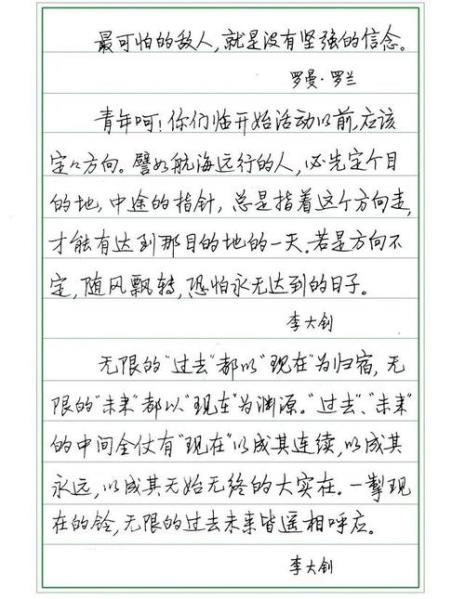 最可怕的敌人，就是没有坚强的信念。
罗曼·罗兰
青年呵！你们临开始活动以前，应该
定々方向。譬如航海远行的人，必先定个目
的地，中途的指针，总是指着这个方向走，
才能有达到那目的地的一天。若是方向不
定，随风飘转，恐怕永无达到的日子。
李大钊
无限的“过去”都以“现在”为归宿，无
限的“未来”都以“现在”为渊源。“过去”、“未来”
的中间全仗有“现在”以成其连续，以成其
永远，以成其无始无终的大实在。一掣现
在的铃，无限的过去未来皆遥相呼应。
李大钊